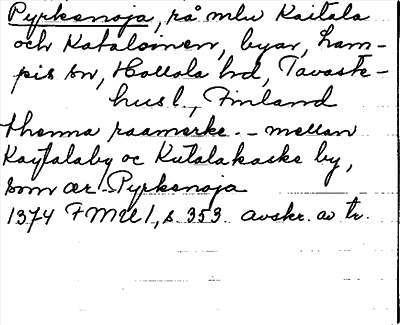 Pyrkenoja, rå mlu Kaitala
och Kataloinen, byar, Lam-
pis sn, Hollola hd, Tavaste-
hus l., Finland
thenna raamerke - mellan
Kaytalaby oc Kutalakaske by,
som ær Pyrkenoja
1374 FMU 1, s. 353. avskr. av tr.